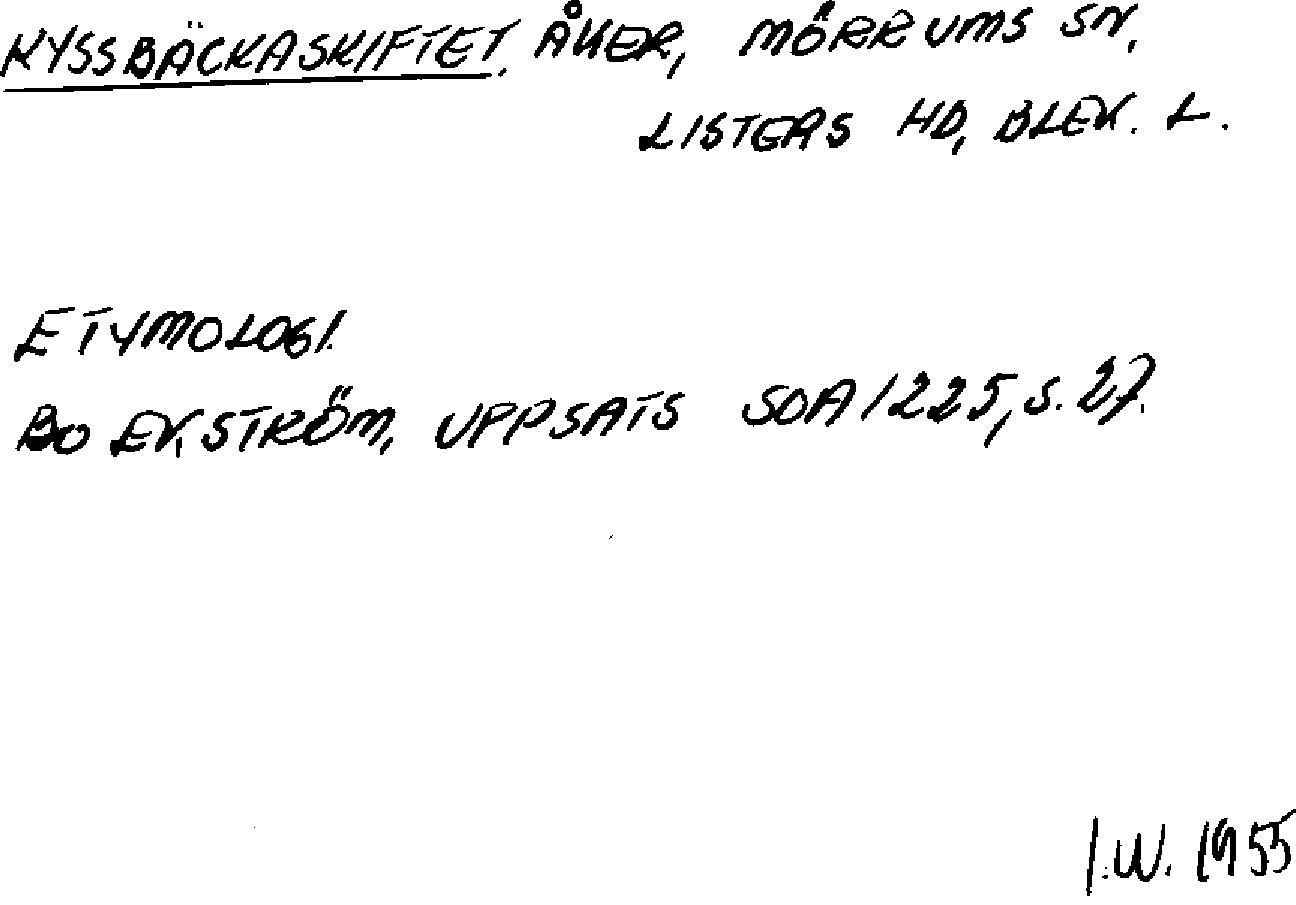 KYSSBÄCKASKIFTET, ÅKER, MÖRRUMS SN,
LISTERS HD, BLEK. L.
ETYMOLOGI.
BO EKSTRÖM, UPPSATS SOA 1225, S. 27.
I.W. 1955